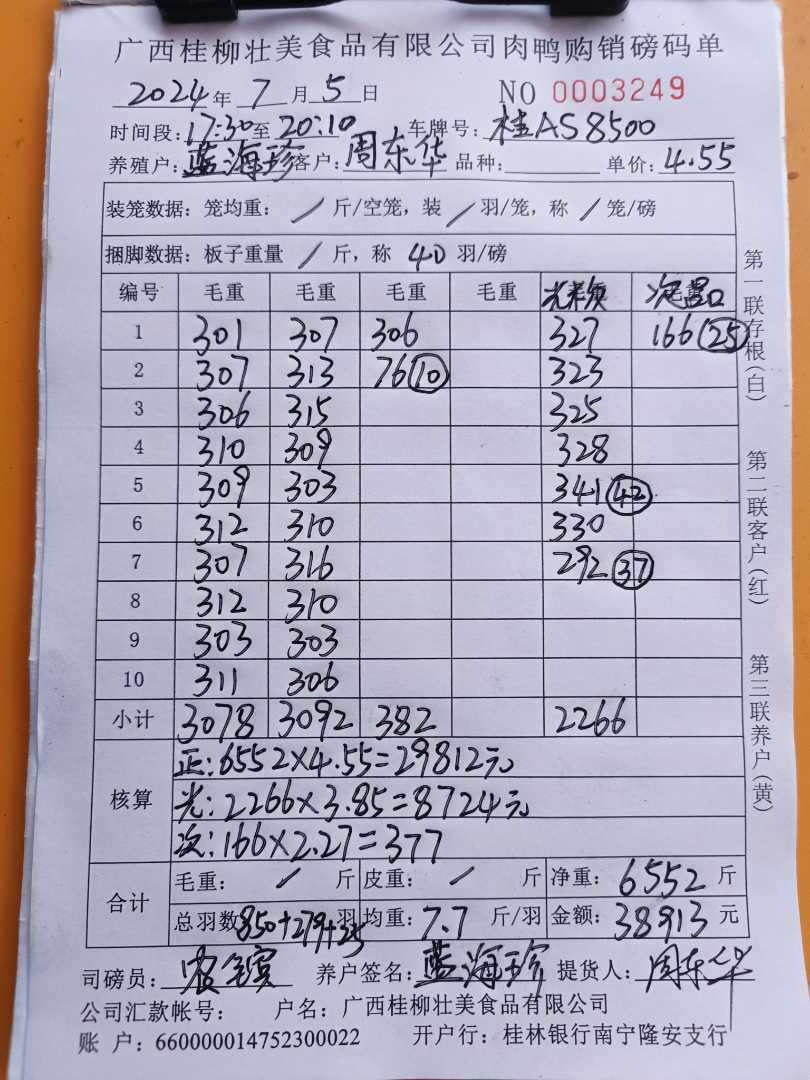 广西桂柳壮美食品有限公司肉鸭购销磅码单
2024年 7月5日 NO 0003249
时间段:17:30至20:10 车牌号:桂AS8500
养殖户:蓝海珍 客户:周东华 品种: 单价:4.55
装笼数据:笼均重: / 斤/空笼,装 / 羽/笼,称 / 笼/磅
捆脚数据:板子重量 / 斤,称 40 羽/磅
编号 毛重 毛重 毛重 毛重 次品
1 301 307 306 327 166 (25)
2 307 313 76 (10) 323
3 306 315 325
4 310 309 328
5 309 303 341 (42)
6 312 310 330
7 307 316 292 (37)
8 312 310
9 303 303
10 311 306
小计 3078 3092 382 2266
核算
正:6552×4.55=29812元
光:2266×3.85=8724元
次:166×2.27=377
合计
毛重: / 斤 皮重: / 斤 净重:6552斤
总羽数850+279+25羽 均重:7.7 斤/羽 金额:38913元
司磅员: 养户签名:蓝海珍 提货人:周东华
公司汇款帐号: 户名:广西桂柳壮美食品有限公司
账 户:660000014752300022 开户行:桂林银行南宁隆安支行
第一联存根(白)
第二联客户(红)
第三联养户(黄)